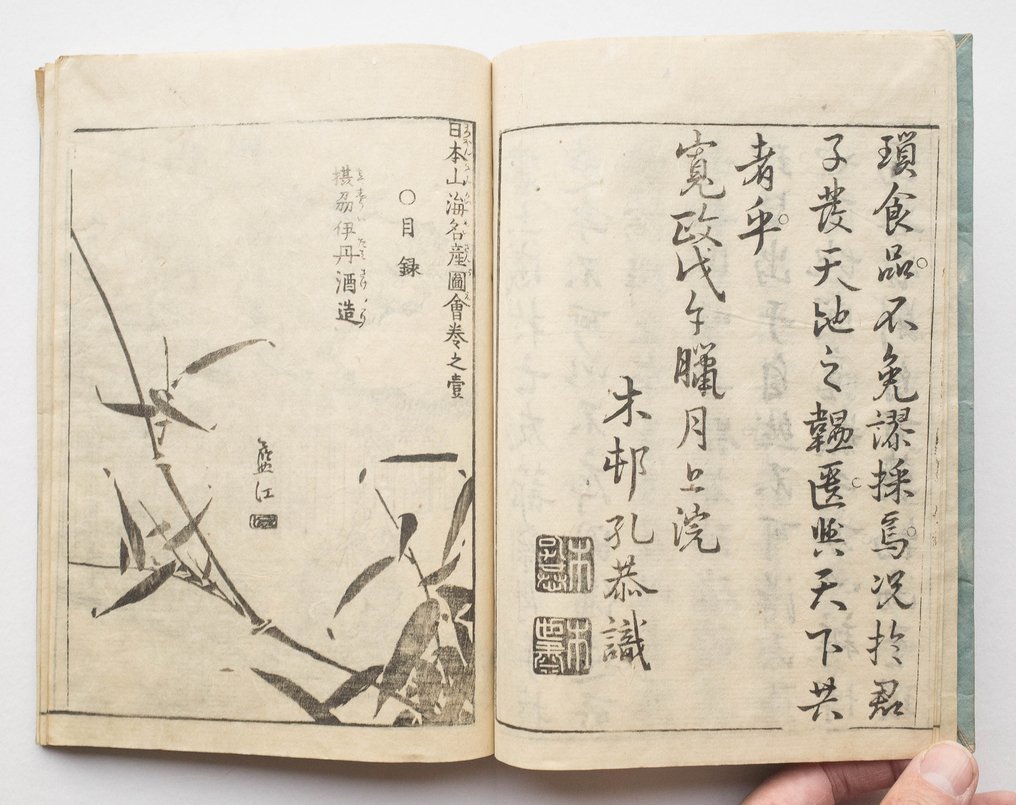 瑣食品不免謬採焉况於君
子發天地之韞匵與天下共
者乎
寛政戊午臘月上浣
木邨孔恭識
日本山海名産圖會巻之壹
○目録
摂刕伊丹酒造
蘆江